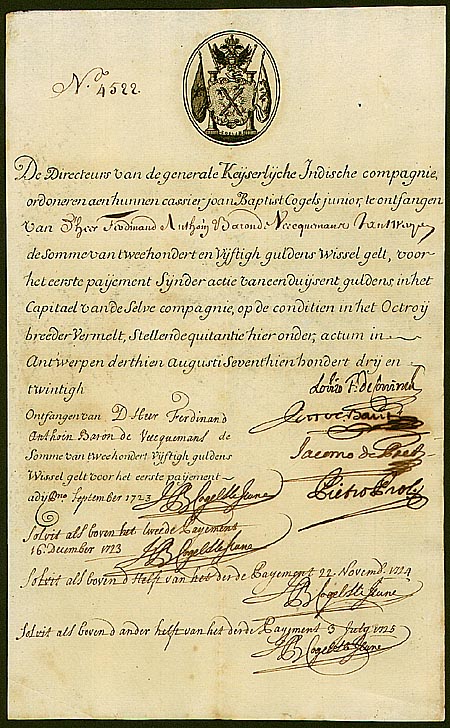 No. 4522
De Directeurs van de generale Keyserlijche Indische compagnie,
ordoneren aen hunnen cassier, joan Baptist Cogels junior, te ontfangen
van D'heer Ferdinand Anthoin Baron de Vecquemans
de Somme van tweehondert en Vijftigh guldens Wissel gelt, voor
het eerste paijement Sijnder actie van een duijsent guldens, in het
Capitael van de Selve compagnie, op de conditien in het Octroij
breeder Vermelt, Stellende quitantie hier onder, actum in
Antwerpen derthien Augusti Seventhien hondert drij en
twintigh
Ontfangen van D Heer Ferdinand
Anthoin Baron de Vecquemans de
Somme van tweehondert Vijftigh guldens
Wissel gelt voor het eerste paijement
September 1723 JB Cogels Le Jeune
Jacomo de Pret
Pietro Proli
Solvit als boven het tweede Payement
16 December 1723 JB Cogels Le Jeune
Solvit als boven d'helft van het derde Payement 22 Novemb. 1724
JB Cogels Le Jeune
Solvit als boven d'ander helft van het derde Payment 3 July 1725
JB Cogels Le Jeune